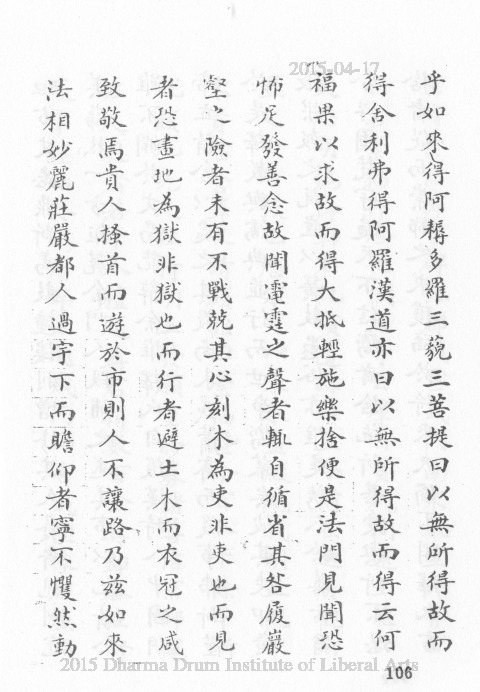 2015-04-17
乎如來得阿耨多羅三藐三菩提曰以無所得故而
得舍利弗得阿羅漢道亦曰以無所得故而得云何
福果以求故而得大抵輕施樂捨便是法門見聞恐
怖足發善念故聞雷霆之聲者輒自循省其咎履巖
壑之險者未有不戰兢其心刻木為吏非吏也而見
者恐畫地為獄非獄也而行者避土木而衣冠之咸
致敬焉貴人搔首而遊於市則人不讓路乃茲如來
法相妙麗莊嚴都人過宇下而瞻仰者寧不懼然動
2015 Dharma Drum Institute of Liberal Arts
106